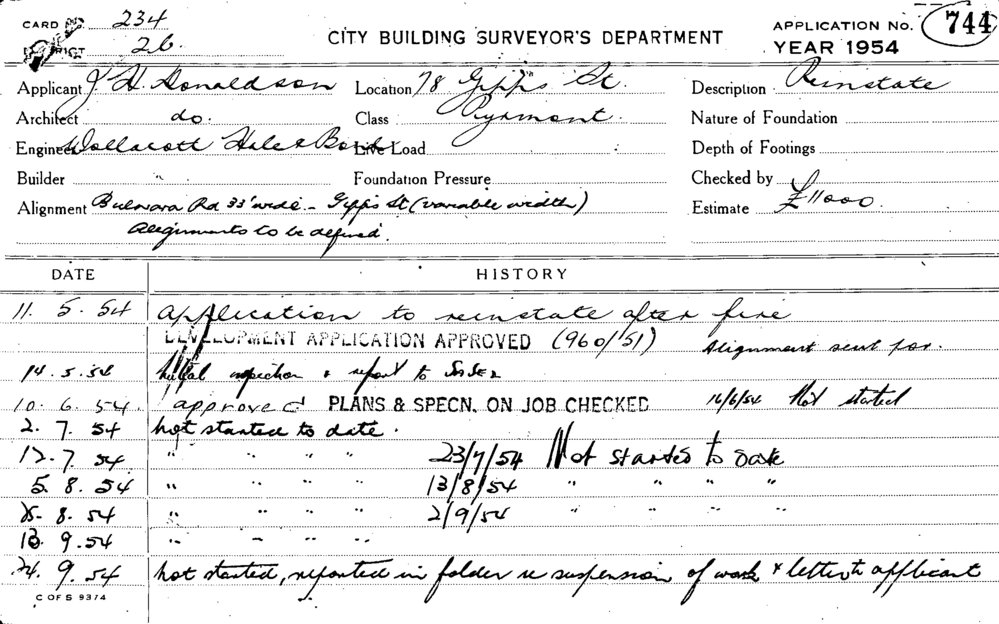 CARD No. 234
DISTRICT 26.
CITY BUILDING SURVEYOR'S DEPARTMENT
APPLICATION No. 744
YEAR 1954
Applicant J H. Donaldson Location 78 Gipps St. Description Reinstate
Architect do. Class Pyrmont. Nature of Foundation
Engineer Wollacott Hale & Live Load Depth of Footings
Builder " Foundation Pressure Checked by
Alignment Bulwara Rd 33' wide - Gipps St (variable width) Estimate £11000.
Alignments to be defined.
DATE HISTORY
11. 5. 54 Application to reinstate after fire
DEVELOPMENT APPLICATION APPROVED (960/51) Alignment sent for.
14. 5. 54 inspection & report to
10. 6. 54. approved PLANS & SPECN. ON JOB CHECKED 16/6/54 Not started
2. 7. 54 Not started to date.
12. 7. 54 " " " " 23/7/54 Not started to date
5. 8. 54 " " " " 13/8/54 " " " "
8. 54 " " " " 2/9/54 " " " "
13. 9. 54 " " " "
24. 9. 54 Not started, reported in folder re suspension of work & letter to applicant
C OF S 9374